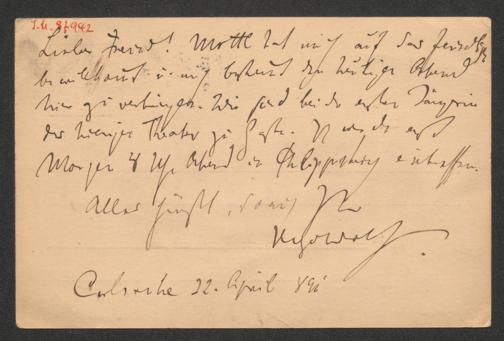 J.N. 87992
Lieber Freund! Mottl hat mich auf das freundlichste
bewillkommt u. mich den heutigen Abend
hier zu verbringen. Wir sind bei der ersten Sängerin
der hiesigen Theater zu Gaste. Ich werde erst
Morgen 8 Uhr Abend in Philippsburg eintreffen.
Alles Ihr
Hugo Wolf
Carlsruhe 22. April 891